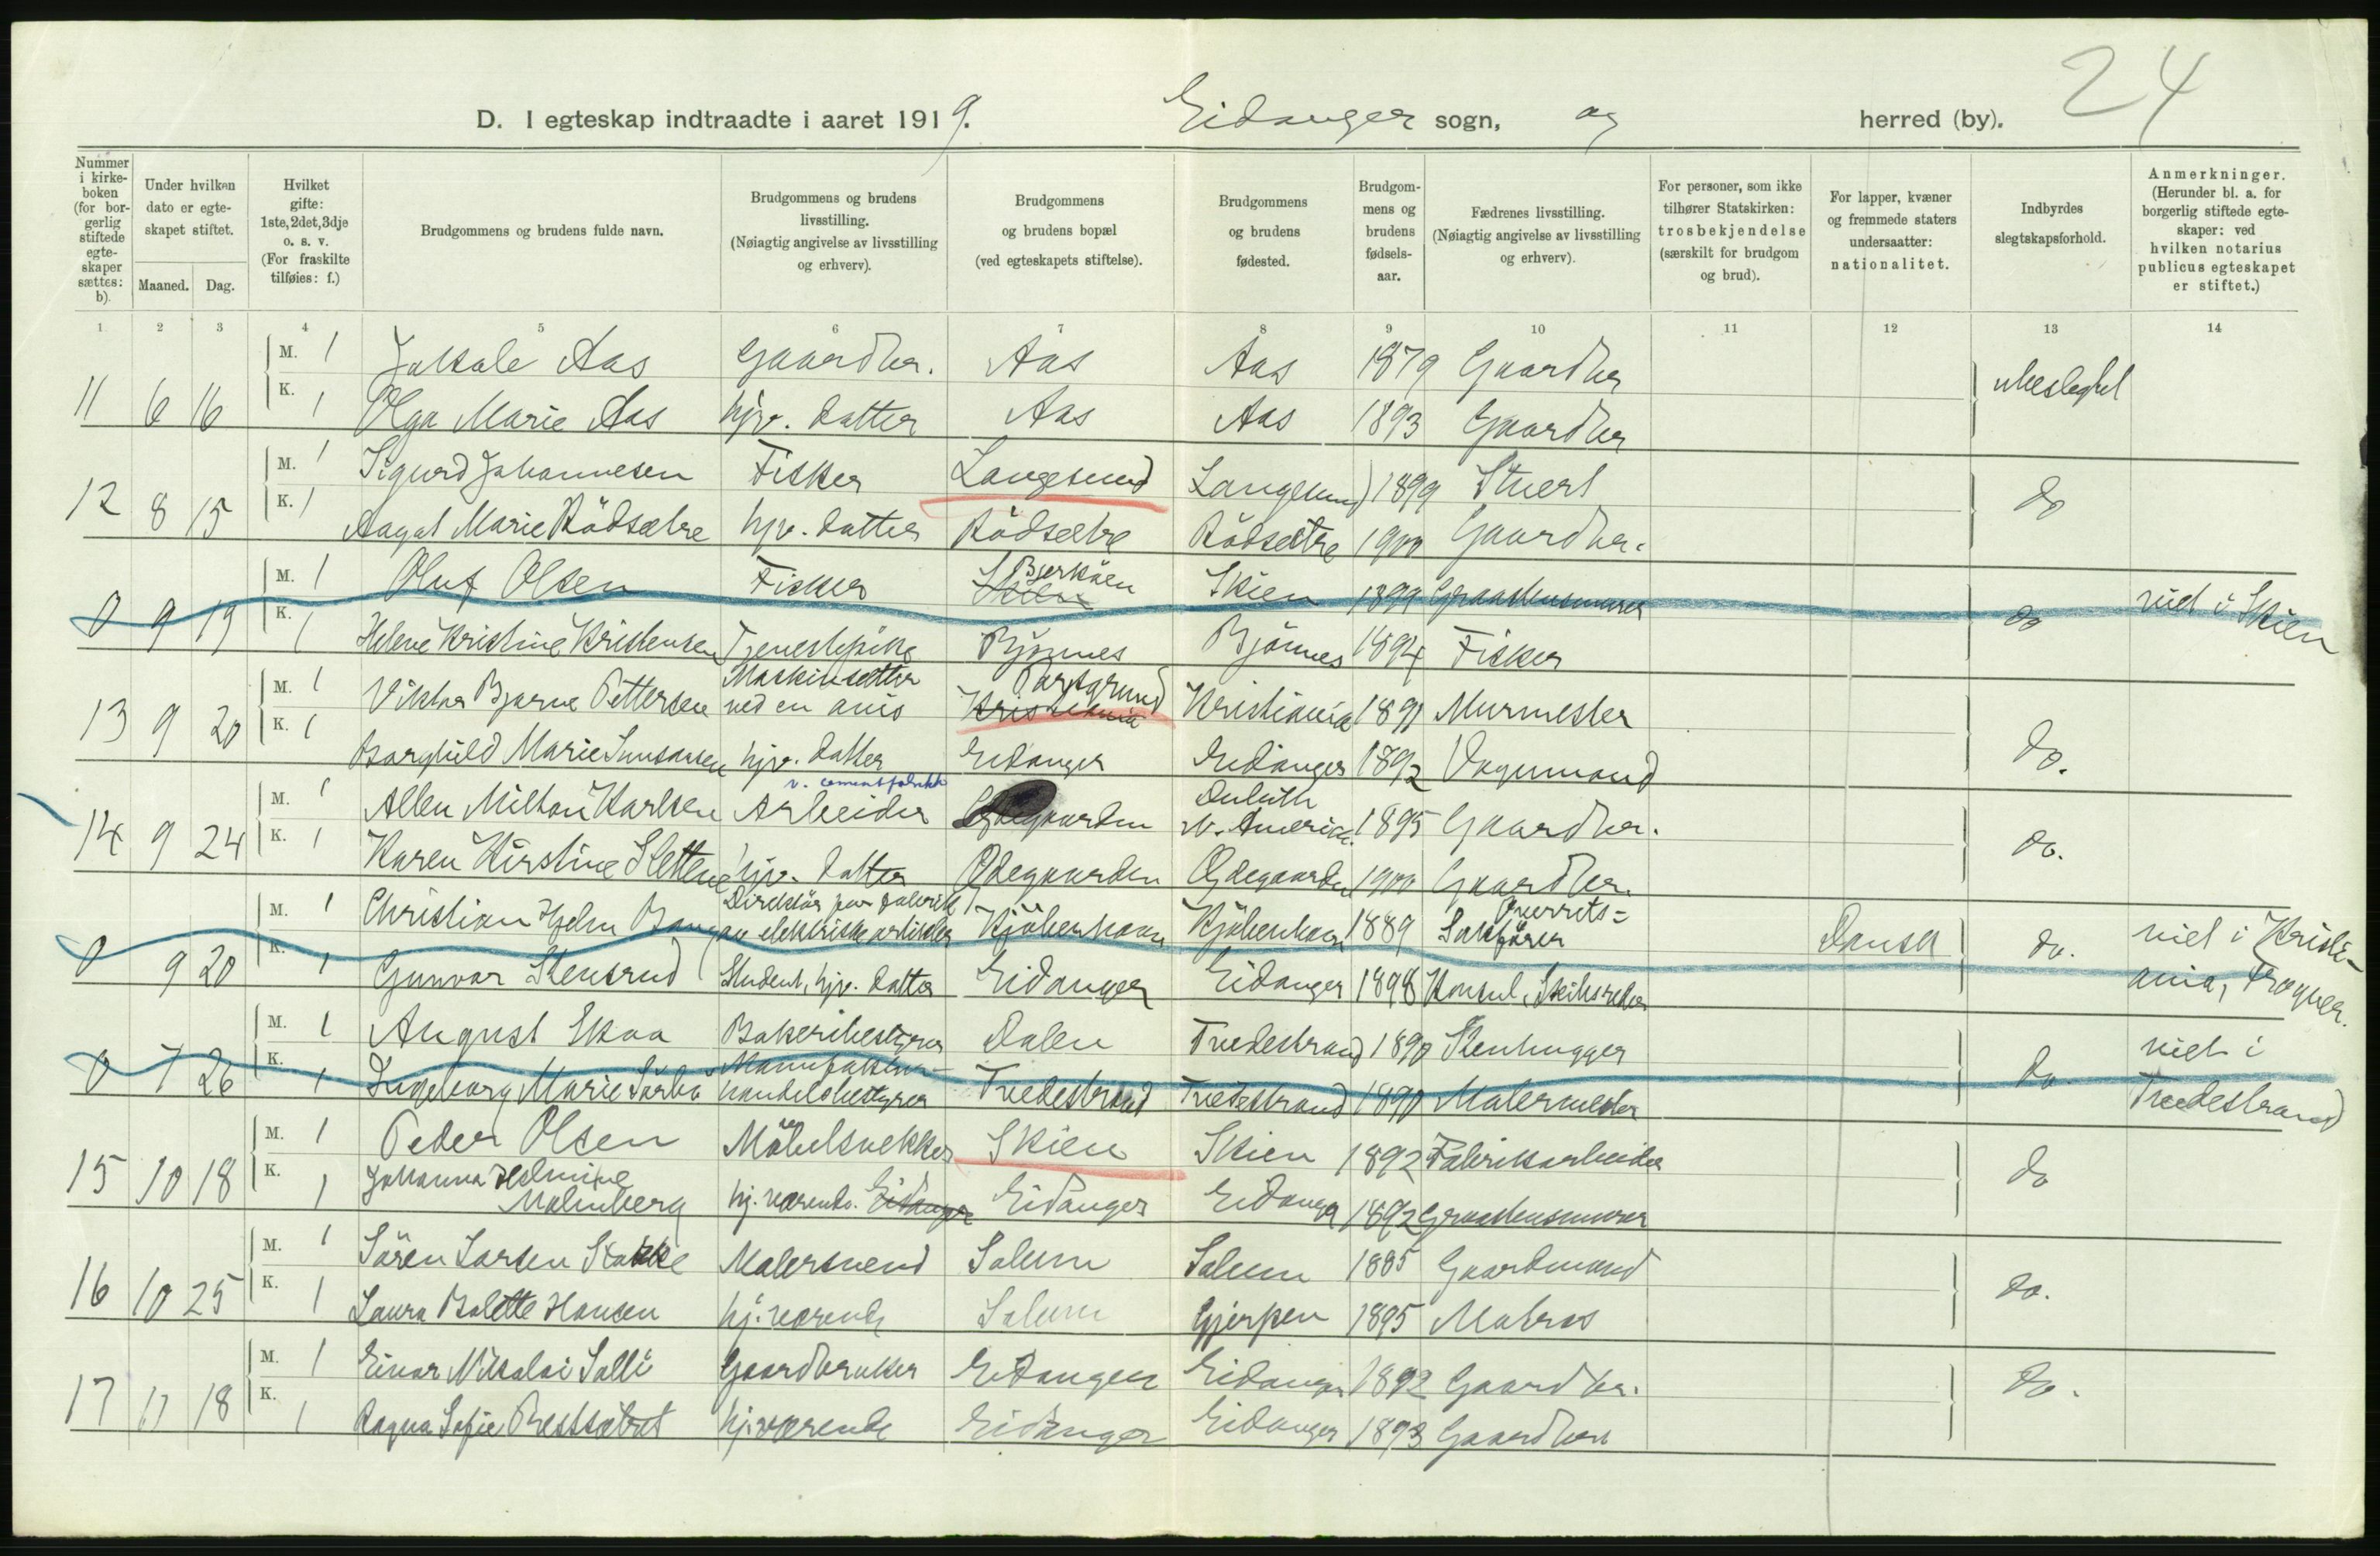 24
D. I egteskap indtraadte i aaret 1919. Eidanger sogn, og herred (by).
Nummer i kirkeboken (for borgerlig stiftede egteskaper sættes: b).
Under hvilken dato er egteskapet stiftet.
Maaned. Dag.
Hvilket gifte: 1ste, 2det, 3dje o. s. v. (For fraskilte tilføies: f.)
Brudgommens og brudens fulde navn.
Brudgommens og brudens livsstilling. (Nøiagtig angivelse av livsstilling og erhverv).
Brudgommens og brudens bopæl (ved egteskapets stiftelse).
Brudgommens og brudens fødested.
Brudgommens og brudens fødselsaar.
Fædrenes livsstilling. (Nøiagtig angivelse av livsstilling og erhverv).
For personer, som ikke tilhører Statskirken: trosbekjendelse (særskilt for brudgom og brud).
For lapper, kvæner og fremmede staters undersaatter: nationalitet.
Indbyrdes slegtskapsforhold.
Anmerkninger. (Herunder bl. a. for borgerlig stiftede egteskaper: ved hvilken notarius publicus egteskapet er stiftet.)
1 2 3 4 5 6 7 8 9 10 11 12 13 14
M. 1 Aas Gaardbr. Aas Aas 1879 Gaardbr
11 6 16 K. 1 Olga Marie Aas hjv. datter Aas Aas 1893 Gaardbr ubeslegtet
M. 1 Sigurd Johannesen Fisker Langesund Langesund 1899 Stuert
12 8 15 K. 1 Aagot Marie Rödsætre hjv. datter Rödsætre Rödsætre 1900 Gaardbr. do
M. 1 Oluf Olsen Fisker Bjerköen Skien Skien 1899 Graastensmurer
0 9 19 K. 1 Helene Kristine Kristensen Tjenestepike Bjönnes Bjönnes 1894 Fisker do viet i Skien
M. 1 Viktor Bjarne Pettersen Maskinsætter ved en avis Porsgrund Kristiania Kristiania 1891 Murmester
13 9 20 K. 1 Borghild Marie hjv. datter Eidanger Eidanger 1892 Vognmand do.
M. 1 Allen Milton Karlsen Arbeider v. cementfabrikk Ødegaarden Duluth N. Amerika 1895 Gaardbr.
14 9 24 K. 1 Karen Kirstine Slettene hjv. datter Ødegaarden Ødegaarden 1900 Gaardbr. do.
M. 1 Christian Hjelm Bang Direktör for fabrik av elektriske artikler Kjöbenhavn Kjöbenhavn 1889 Overrets=Sakförer Dansk
0 9 20 K. 1 Gunvor Stensrud Student, hjv. datter Eidanger Eidanger 1898 Konsul, Skibsreder do. viet i Kristiania, Frogner.
M. 1 August Skaa Bakeribestyrer Dalen Tvedestrand 1890 Stenhugger
0 7 26 K. 1 Ingeborg Marie Sörbö Manufaktur-handelsbestyrer Tvedestrand Tvedestrand 1890 Malermester do. viet i Tvedestrand
M. 1 Peder Olsen Möbelsnekker Skien Skien 1892 Fabrikarbeider
15 10 18 K. 1 Johanna Helmine Malmberg hj. værende. Eidanger Eidanger Eidanger 1892 Graastensmurer do
M. 1 Sören Larsen Stokke Malersvend Solum Solum 1885 Gaardmand
16 10 25 K. 1 Laura Bolette Hansen hj. værende Solum Gjerpen 1895 Matros do.
M. 1 Einar Nikolai Solli Gaardbruker Eidanger Eidanger 1892 Gaardbr.
17 11 18 K. 1 Ragna Sofie hj. værende Eidanger Eidanger 1893 Gaardbr do.